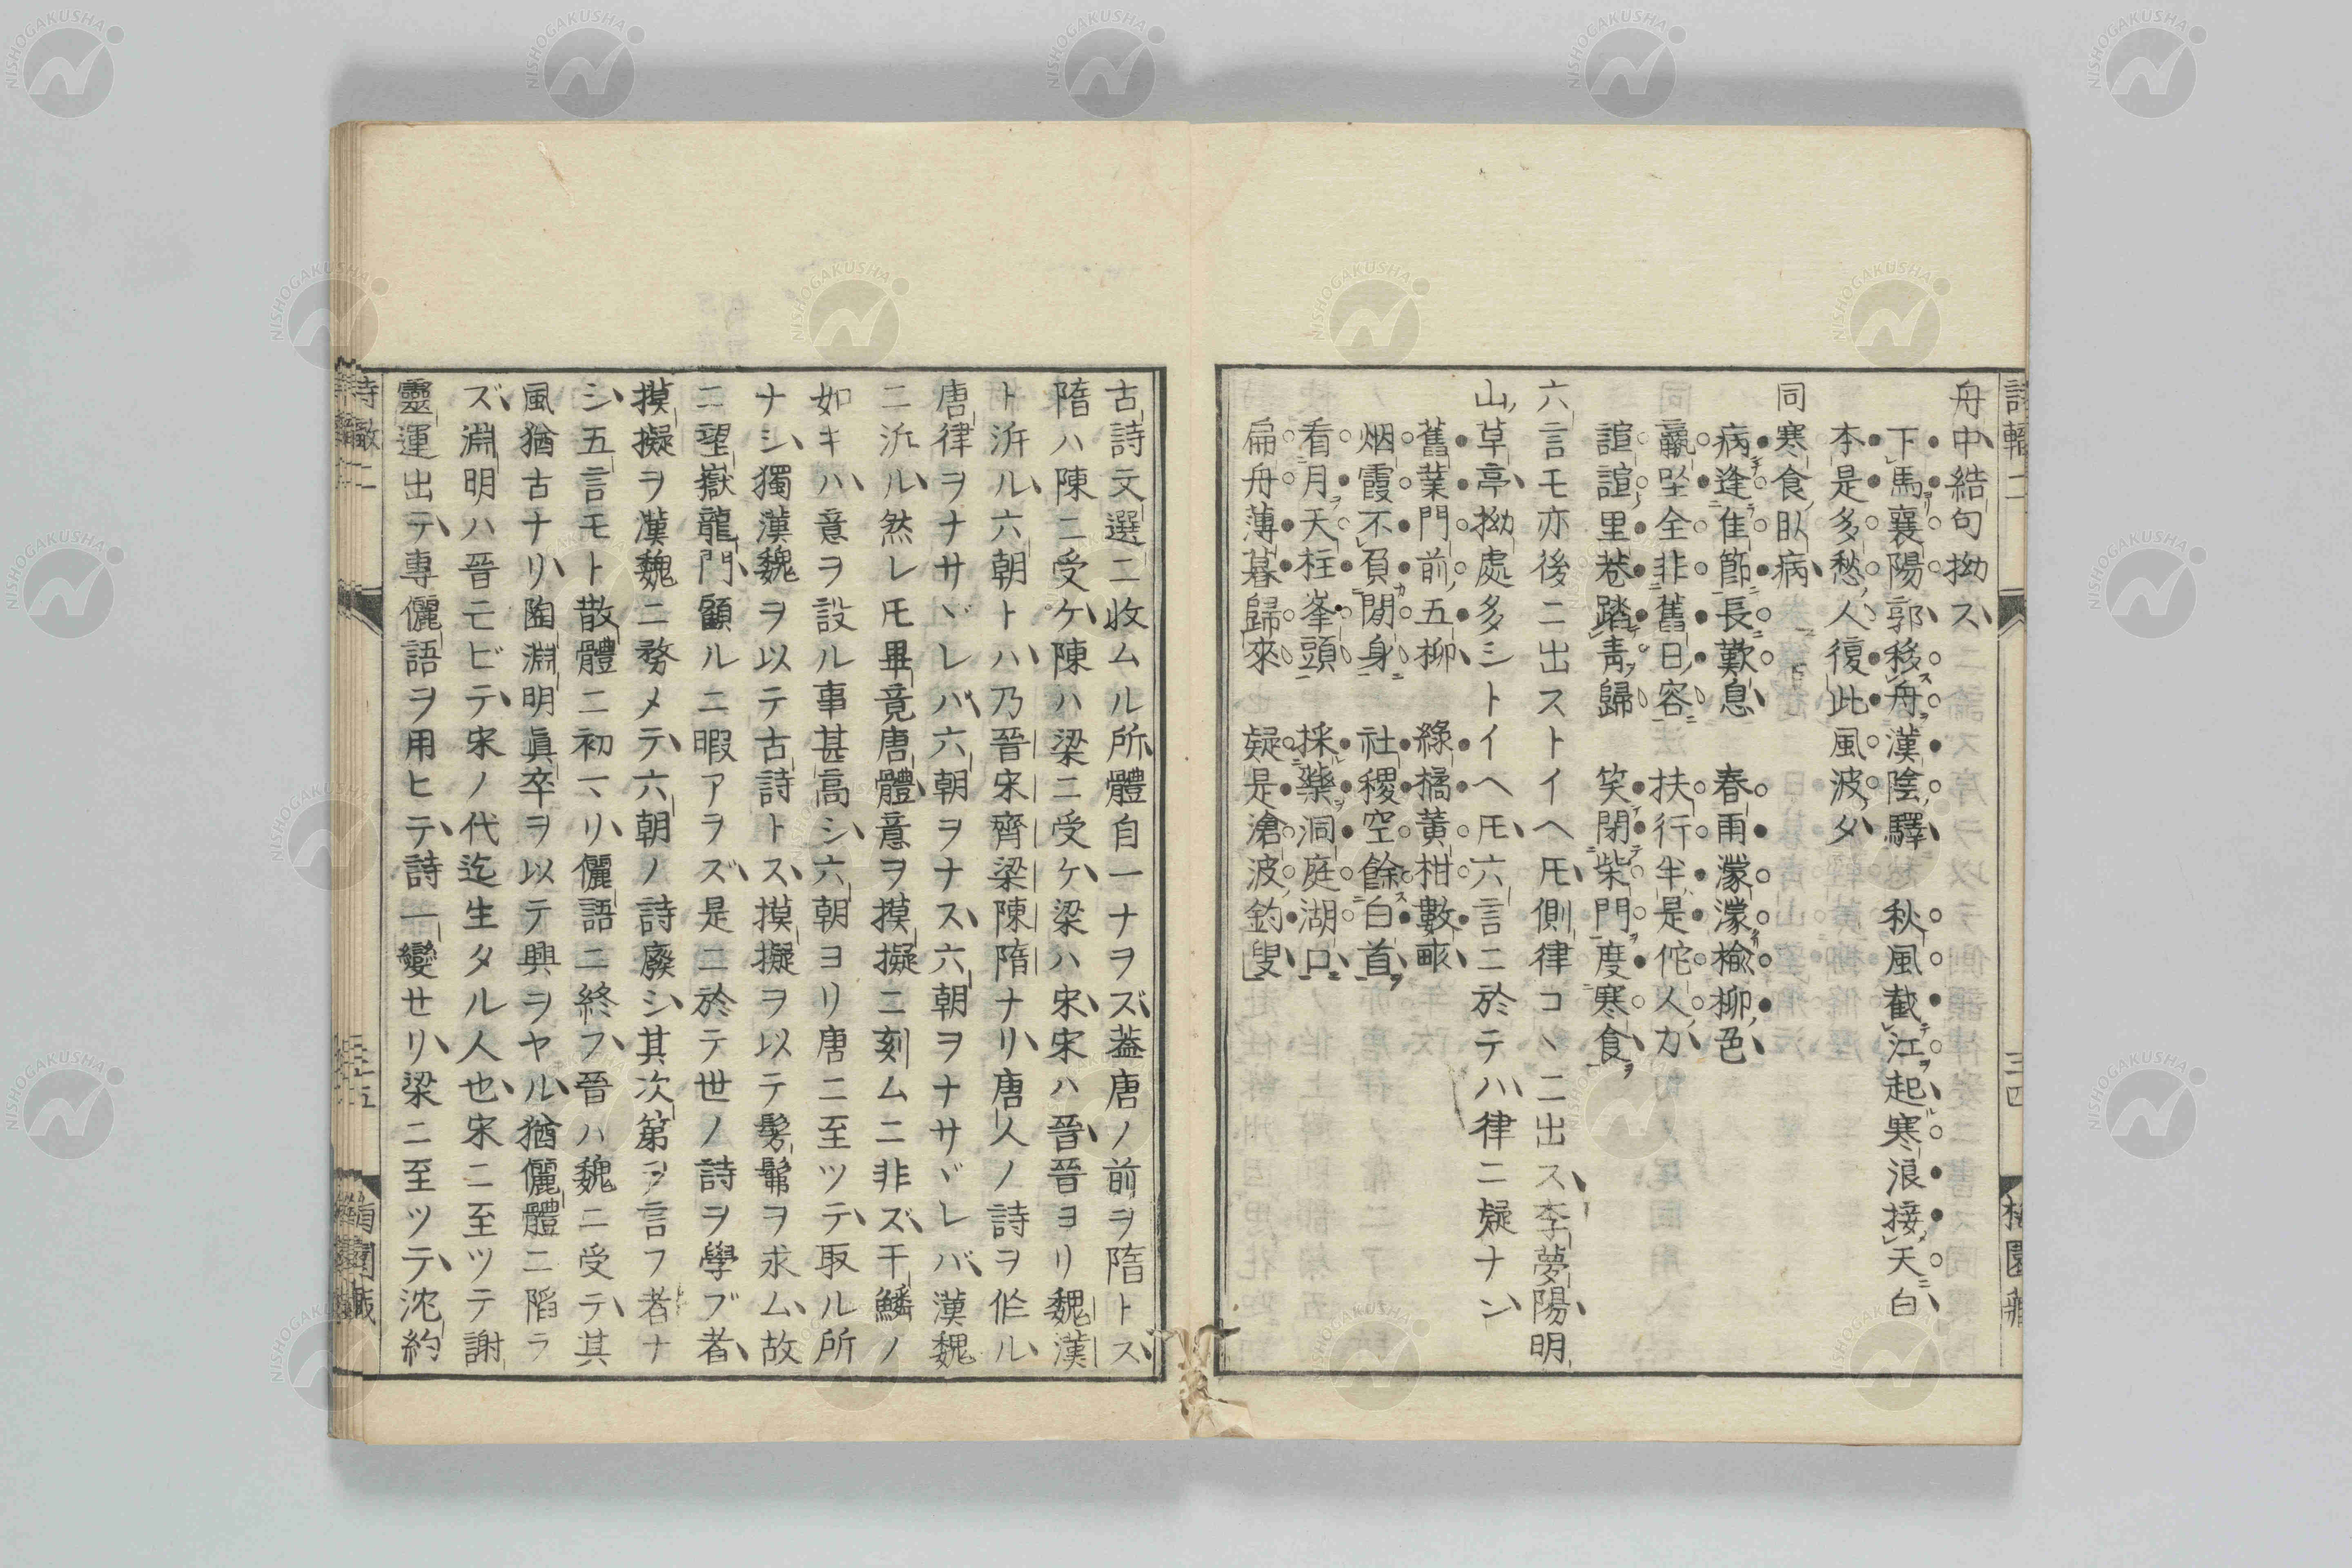 舟中結句拗ス
下馬襄陽郭移舟漢陰驛　秋風截江起寒浪接天白
本是多愁人復此風波夕
同寒食臥病
病逢佳節長歎息　春雨濛濛楡柳色
羸坐全非舊日容　扶行半是佗人力
諠諠里巷踏青歸　笑閉柴門度寒食
六言モ亦後ニ出ストイヘ𪜈側律コヽニ出ス李夢陽明
山草亭拗處多シトイヘ𪜈六言ニ於テハ律ニ疑ナシ
舊葉門前五柳　綠橘黃柑數畝
烟霞不負閒身　社稷空餘白首
看月天柱峯頭　採藥洞庭湖口
扁舟薄暮歸來　疑是滄波釣叟
古詩文選ニ收ムル所體自一ナヲズ蓋唐ノ前ヲ隋トス
隋ハ陳ニ受ケ陳ハ梁ニ受ケ梁ハ宋宋ハ晉晉ヨリ魏漢
ト泝ル六朝トハ乃晉宋齊梁陳隋ナリ唐人ノ詩ヲ作ル
唐律ヲナサヾレバ六朝ヲナス六朝ヲナサヾレバ漢魏
ニ泝ル然レ𪜈畢竟唐體意ヲ摸擬ニ刻ムニ非ズ干鱗ノ
如キハ意ヲ設ル事甚高シ六朝ヨリ唐ニ至ツテ取ル所
ナシ獨漢魏ヲ以テ古詩トス摸擬ヲ以テ髣髴ヲ求ム故
ニ望嶽龍門顧ルニ暇アラズ是ニ於テ世ノ詩ヲ學ブ者
摸擬ヲ漢魏ニ務メテ六朝ノ詩廢シ其次第ヲ言フ者ナ
シ五言モト散體ニ初マリ儷語ニ終フ晉ハ魏ニ受テ其
風猶古ナリ陶淵明眞卒ヲ以テ興ヲヤル猶儷體ニ陷ラ
ズ淵明ハ晉亡ビテ宋ノ代迄生タル人也宋ニ至ツテ謝
靈運出テ專儷語ヲ用ヒテ詩一變セリ梁ニ至ツテ沈約